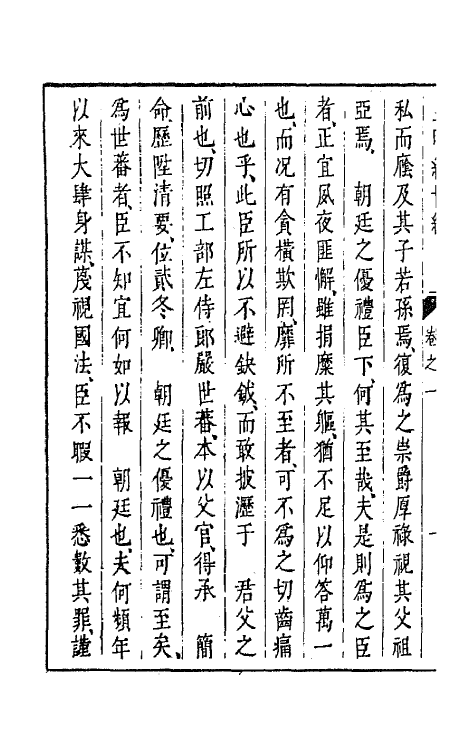 卷之一
私而廕及其子若孫焉復爲之崇爵厚祿視其父祖
亞焉　朝廷之優禮臣下何其至哉夫是則爲之臣
者正宜夙夜匪懈雖捐糜其軀猶不足以仰答萬一
也而况有貪橫欺罔靡所不至者可不爲之切齒痛
心也乎此臣所以不避鈇鉞而敢披瀝于　君父之
前也切照工部左侍郎嚴世蕃本以父官得承　簡
命歷陞清要位貳冬卿　朝廷之優禮也可謂至矣
爲世蕃者臣不知宜何如以報　朝廷也夫何頻年
以來大肆身謀蔑視國法臣不暇一一悉數其罪謹